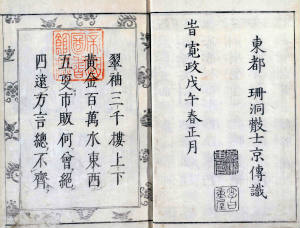 東都　珊洞散士京傳識
旹寛政戊午春正月
翠袖三千樓上下
黄金百萬水東西
五更市販何曾絕
四遠方言總不齊